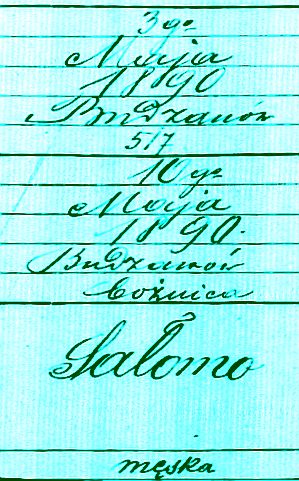 3go
Maja
1890
Budzanów
517
10 go
Maja
1890.
Budzanów
bożnica
Salomo
męska